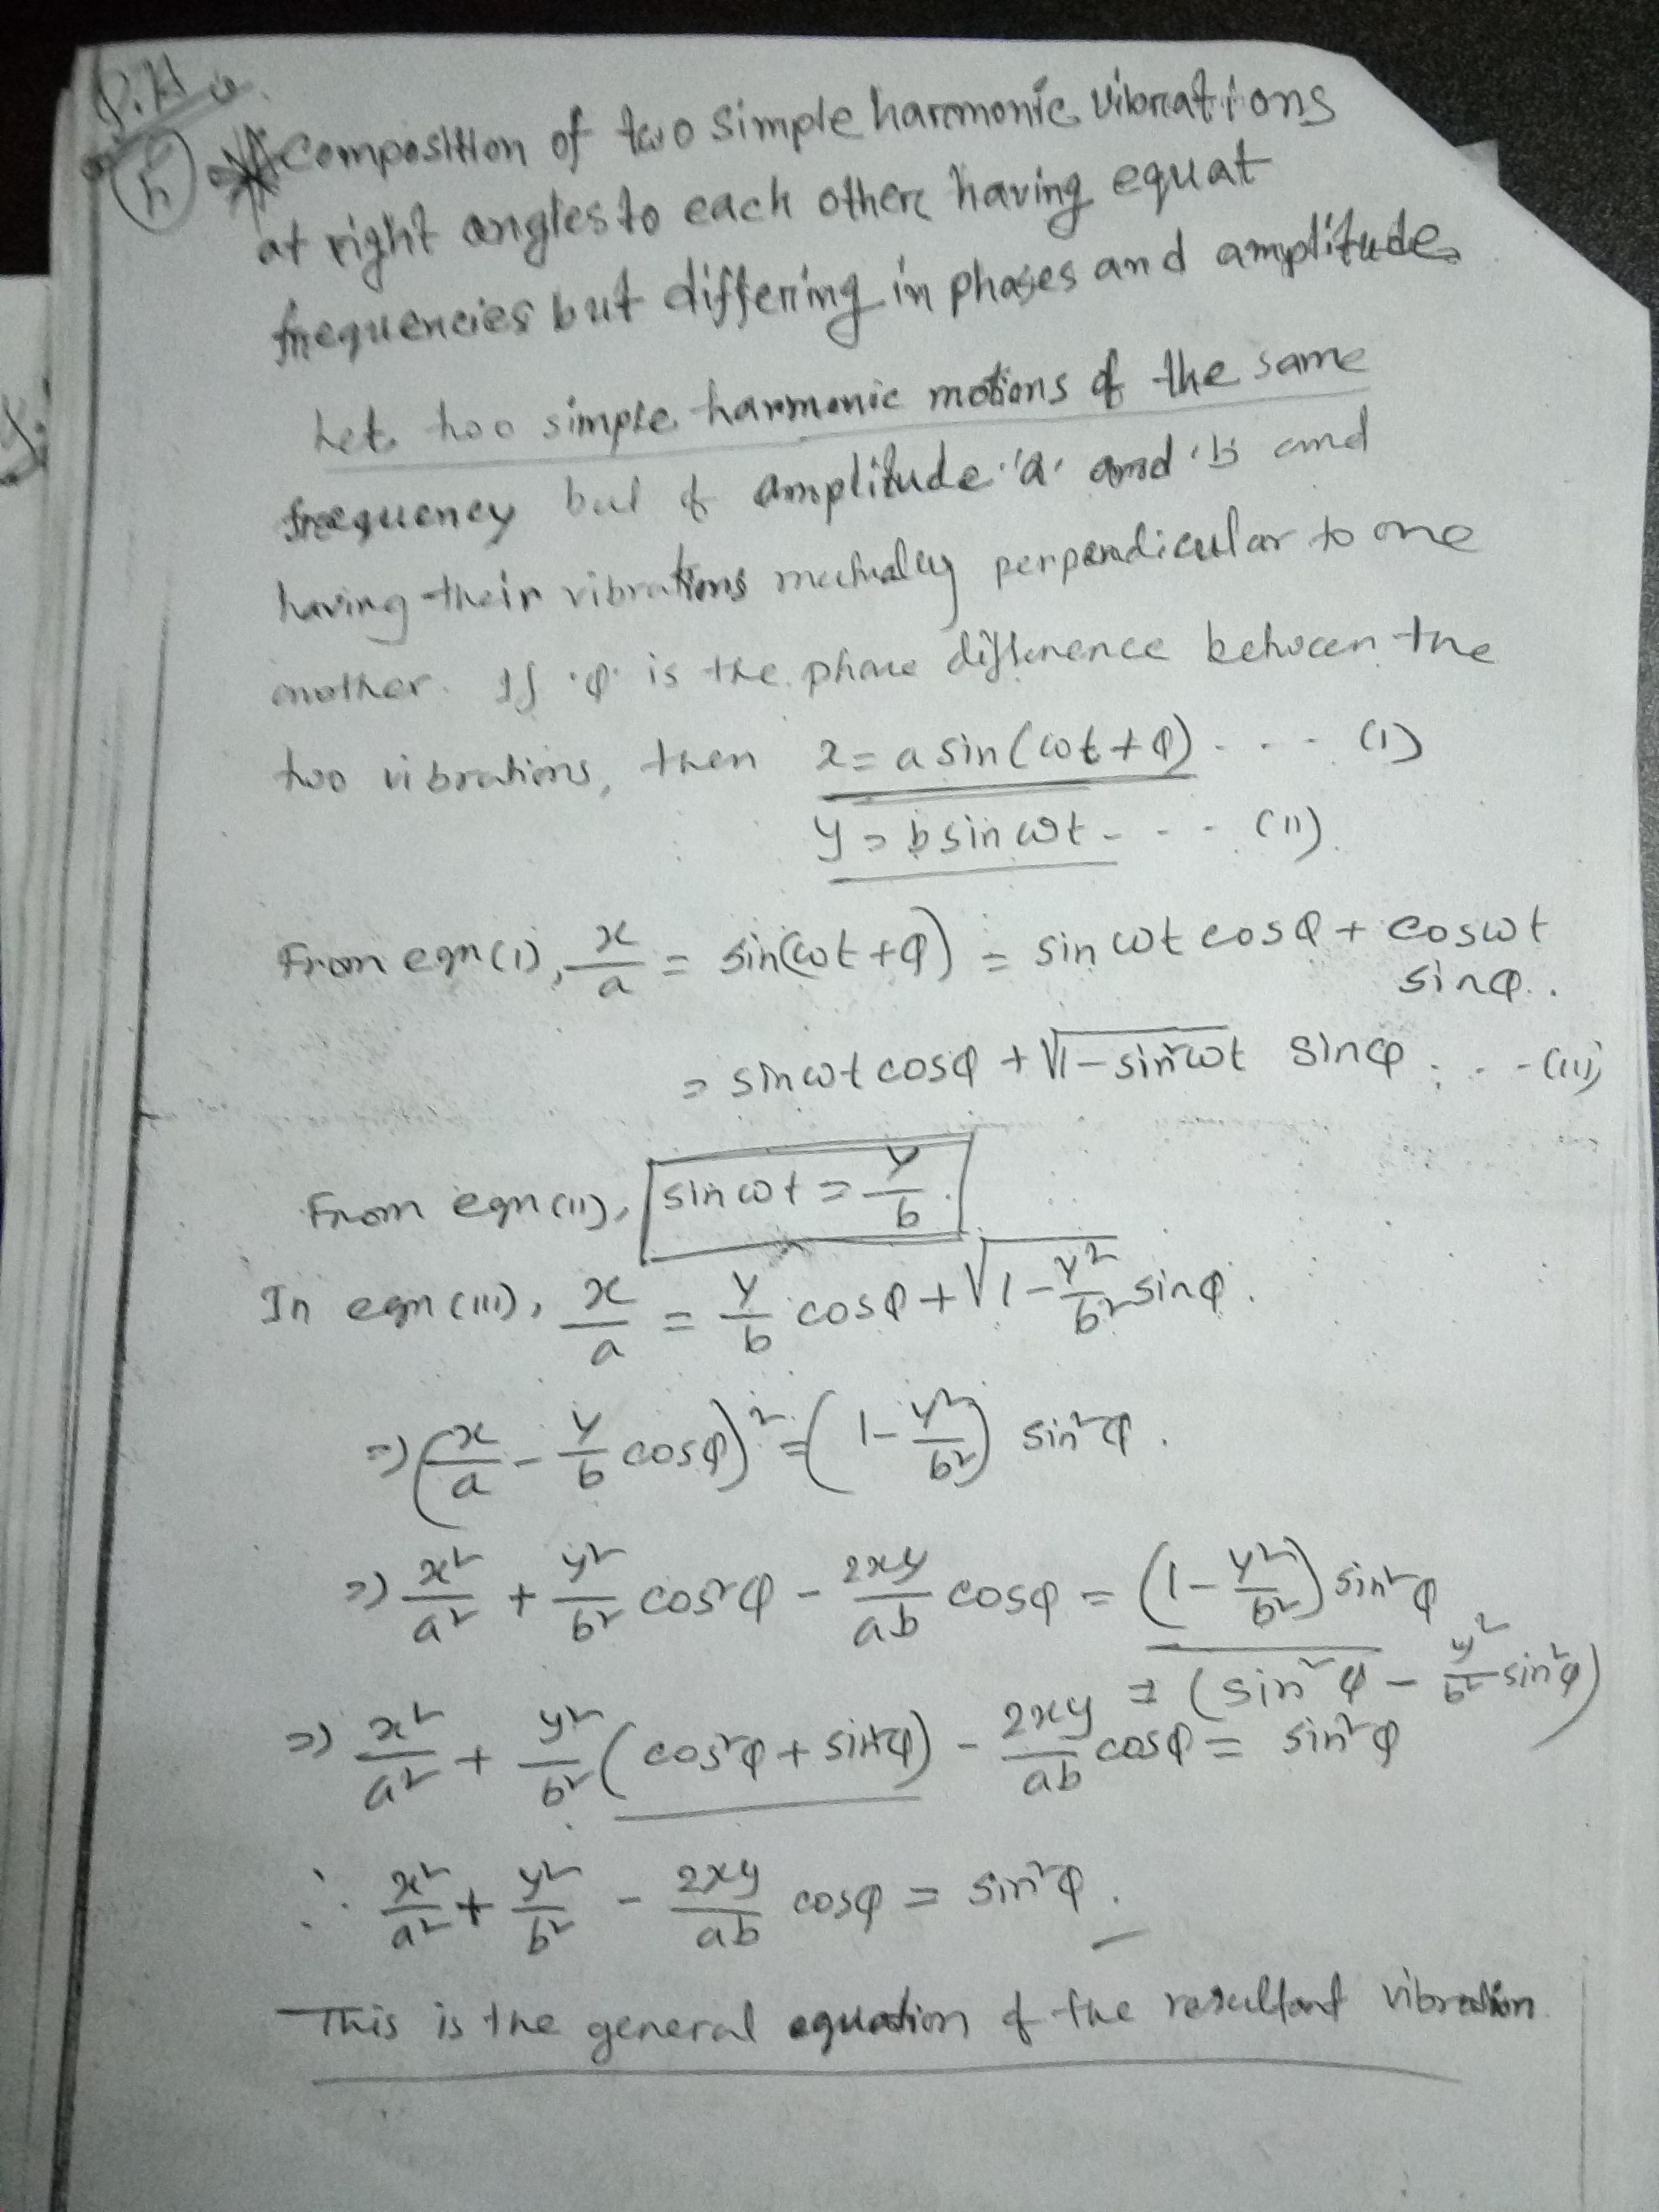 P.H
h
Composition of two simple harmonic vibrations
at right angles to each other having equal
frequencies but differing in phases and amplitude
Let two simple harmonic motions of the same
frequency but of amplitude 'a' and 'b' and
having their vibrations mutually perpendicular to one
another. If 'φ' is the phase difference between the
two vibrations, then x = a sin(ωt+φ) - - - - (I)
y = b sin ωt - - - - (II)
From eqn (I), x/a = sin(ωt+φ) = sin ωt cosφ + cos ωt
sinφ..
= sin ωt cosφ + √1-sin²ωt sinφ . . . - (III)
From eqn (II), sin ωt = y/b.
In eqn (III), x/a = y/b cosφ + √1 - y²/b² sinφ.
⇒ (x/a - y/b cosφ)² = (1 - y²/b²) sin²φ.
⇒ x²/a² + y²/b² cos²φ - 2xy/ab cosφ = (1 - y²/b²) sin²φ
= (sin²φ - y²/b² sin²φ)
⇒ x²/a² + y²/b² (cos²φ + sin²φ) - 2xy/ab cosφ = sin²φ
∴ x²/a² + y²/b² - 2xy/ab cosφ = sin²φ.
This is the general equation of the resultant vibration.